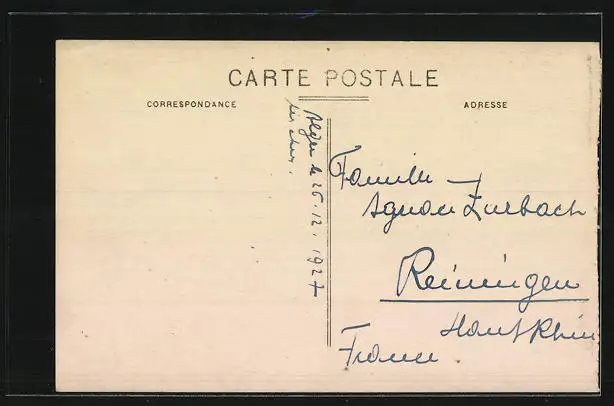 CARTE POSTALE
CORRESPONDANCE
ADRESSE
Alger le 26.12.1927
Famille
Zurbach
Reiningen
Haut Rhin
France